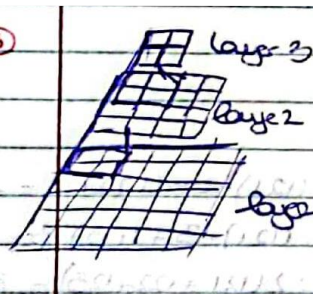 layer 3
layer 2
layer